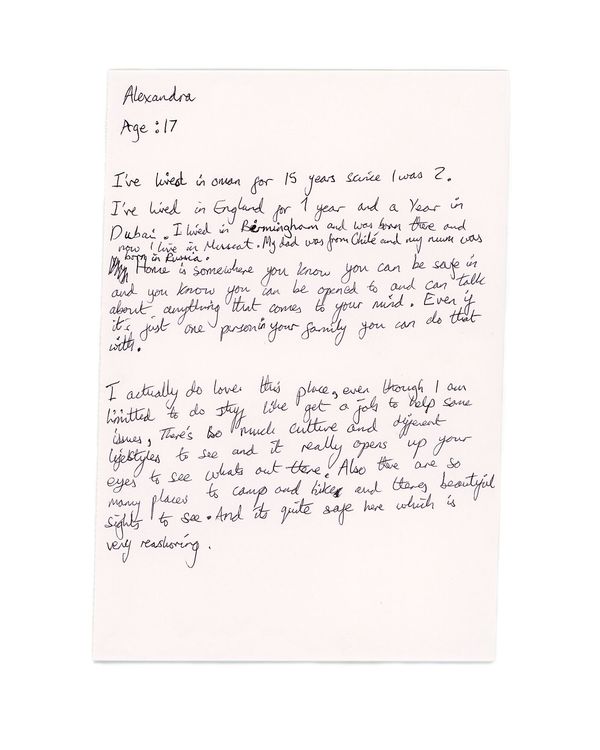 Alexandra
Age : 17
I've lived in oman for 15 years since I was 2.
I've lived in England for 1 year and a Year in
Dubai. I lived in Birmingham and was born there and
now I live in Muscat. My dad was from Chile and my mum was
born in Russia.
Home is somewhere you know you can be safe in
and you know you can be opened to and can talk
about anything that comes to your mind. Even if
it's just one person in your family you can do that
with.
I actually do love this place, even though I am
limitted to do stuff like get a job to help some
issues, There's so much culture and different
lifestyles to see and it really opens up your
eyes to see whats out there. Also there are so
many places to camp and hike and theres beautiful
sights to see. And its quite safe here which is
very reashoring.